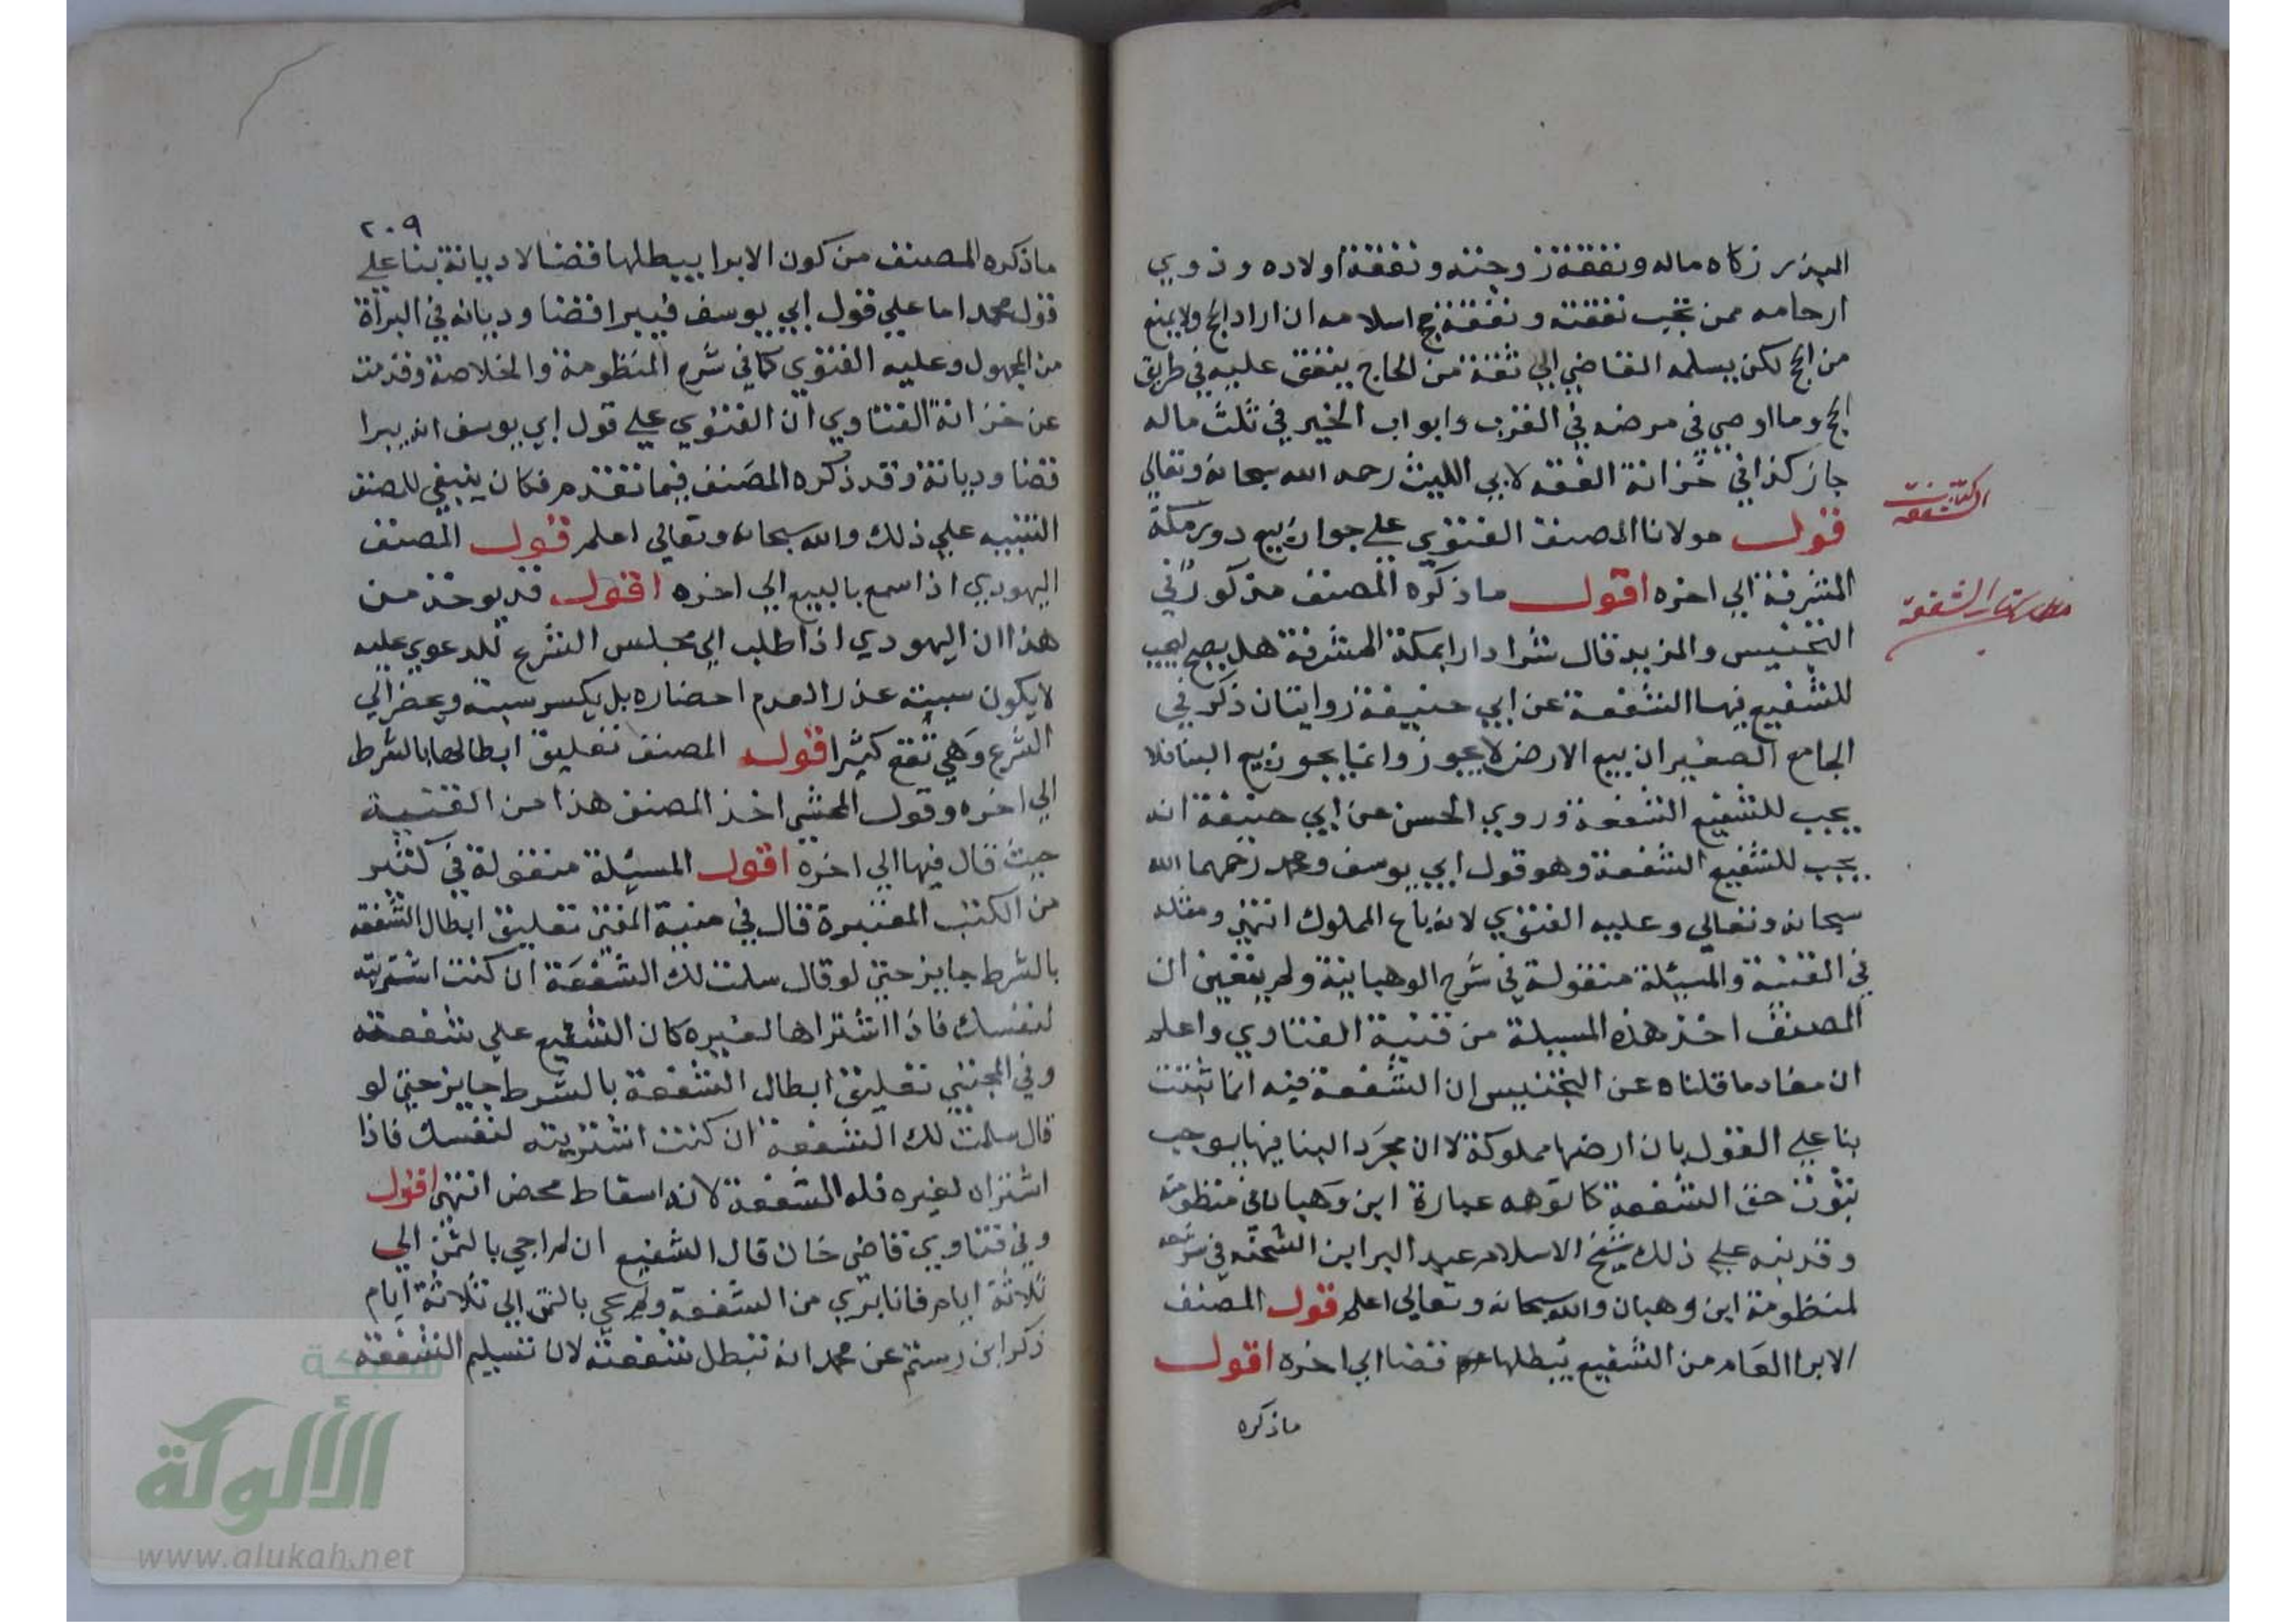 المبذر زكاه ماله ونفقة زوجته ونفقة اولاده وذوي
ارحامه ممن تجب نفقته ونفقة حج اسلامه ان اراد الحج ولا يمنع
من الحج لكن يسلمه القاضي الي ثقة من الحاج ينفق عليه في طريق
الحج وما اوصي في مرضه في القرب وابواب الخير في ثلث ماله
جاز كذا في خزانة الفقه لابي الليث رحمه الله سبحانه وتعالي
قول مولانا المصنف الفتوي علي جواز بيع دور مكة
المشرفة الي اخره اقول ما ذكره المصنف مذكور في
التجنيس والمزيد قال شرا دارا بمكة المشرفة هل يصح ليجب
للشفيع فيها الشفعة عن ابي حنيفة روايتان ذكر في
الجامع الصغير ان بيع الارض لا يجوز وانما يجوز بيع البنا فلا
يجب للشفيع الشفعة وروي الحسن عن ابي حنيفة انه
يجب للشفيع الشفعة وهو قول ابي يوسف ومحمد رحمهما الله
سبحانه وتعالي وعليه الفتوي لانه باع المملوك انتهي ومثله
في القنية والمسئلة منقولة في شرح الوهبانية ولم يتعين ان
المصنف اخذ هذه المسيلة من قنية الفتاوي واعلم
ان مفاد ما قلناه عن التجنيس ان الشفعة فيه انما ثبتت
بنا علي القول بان ارضها مملوكة لا ان مجرد البنا فيها يوجب
ثبوت حق الشفعة كما توهمه عبارة ابن وهبان في منظومته
وقد نبه علي ذلك شيخ الاسلام عبد البر ابن الشحنه في شرحه
لمنظومة ابن وهبان والله سبحانه وتعالي اعلم قول المصنف
الابرا العام من الشفيع يبطلها قضا الي اخره اقول
ما ذكره
كتاب الشفعة
مطلب كتاب الشفعة
٢٠٩
ما ذكره المصنف من كون الابرا يبطلها قضا لا ديانة بنا علي
قول محمد اما علي قول ابي يوسف فيبرا قضا وديانه في البرأة
من المجهول وعليه الفتوي كما في شرح المنظومة والخلاصة وقدمت
عن خزانة الفتاوي ان الفتوي علي قول ابي يوسف انه يبرا
قضا وديانة وقد ذكره المصنف فيما تقدم فكان ينبغي للمصنف
التنبيه علي ذلك والله سبحانه وتعالي اعلم قول المصنف
اليهودي اذا سمع بالبيع الي اخره اقول قد يوخذ من
هذا ان اليهودي اذا طلب الي مجلس الشرع للدعوي عليه
لا يكون سبته عذرا لعدم احضاره بل يكسر سبته ويحضر الي
الشرع وهي تقع كثيرا قول المصنف تعليق ابطالها بالشرط
الي اخره وقول المحشي اخذ المصنف هذا من القنية
حيث قال فيها الي اخره اقول المسيلة منقولة في كثير
من الكتب المعتبرة قال في منية المفتي تعليق ابطال الشفعة
بالشرط جايز حتي لو قال سلمت لك الشفعة ان كنت اشتريته
لنفسك فاذا اشتراها لغيره كان الشفيع علي شفعته
وفي المجتبي تعليق ابطال الشفعة بالشرط جايز حتي لو
قال سلمت لك الشفعة ان كنت اشتريته لنفسك فاذا
اشتراه لغيره فله الشفعة لانه اسقاط محض انتهي اقول
وفي فتاوي قاضي خان قال الشفيع ان لم اجي بالثمن الي
ثلاثة ايام فانا بري من الشفعة ولم يجي بالثمن الي ثلاثة ايام
ذكر ابن رستم عن محمد انه تبطل شفعته لان تسليم الشفعة
شبكة
الألوكة
www.alukah.net